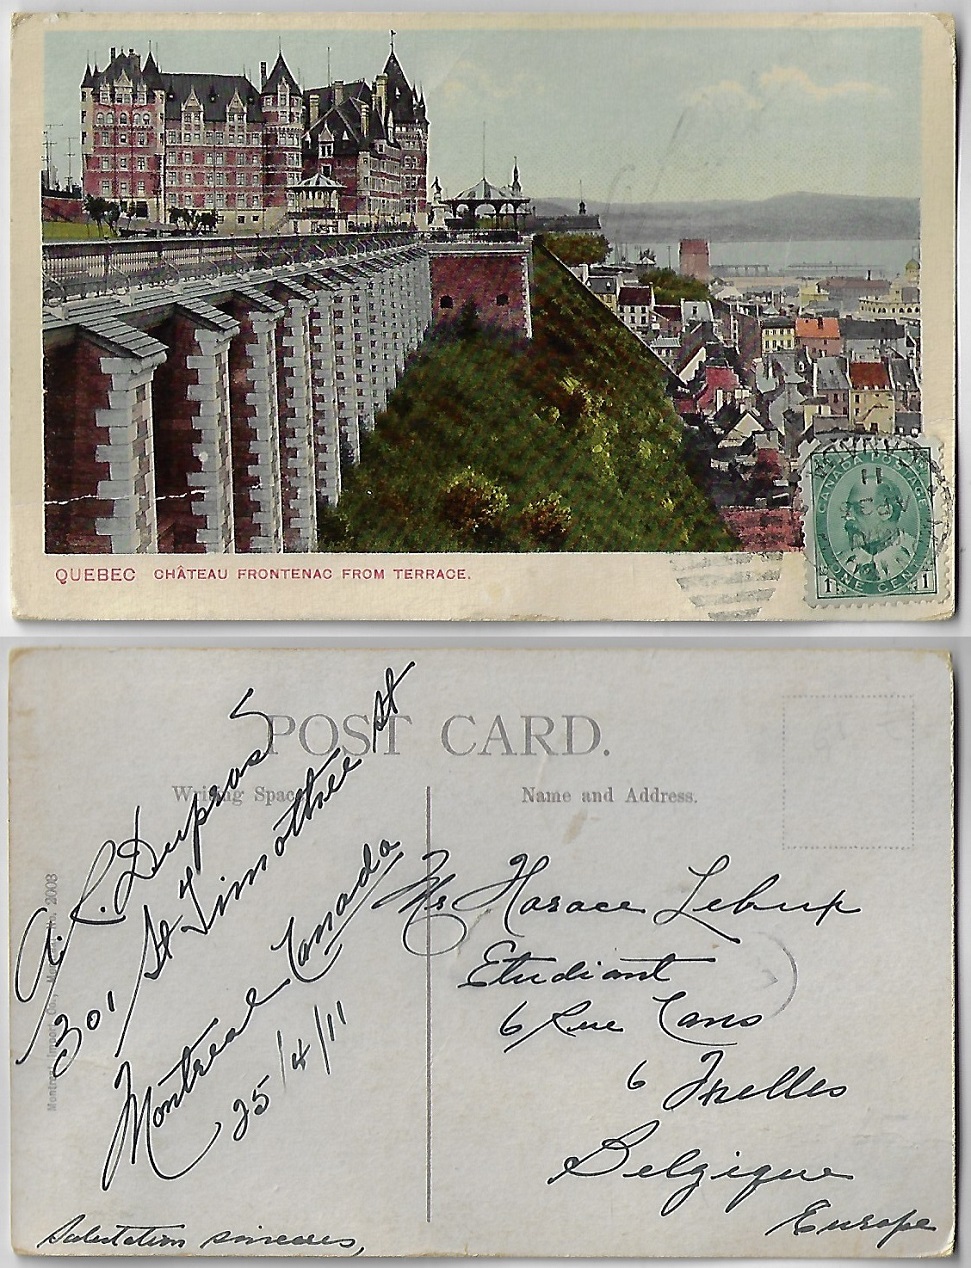 QUEBEC CHÂTEAU FRONTENAC FROM TERRACE.
CANADA POSTAGE
1 ONE CENT 1
POST CARD.
Writing Space
Name and Address.
A. L. Dupras
301 St Timothée St
Montreal Canada
25/4/11
Salutation sinceres,
Mr Horace Lebrup
Etudiant
6 Rue Cans
6 Ixelles
Belgique
Europe
Montreal Import Co., No. 2003